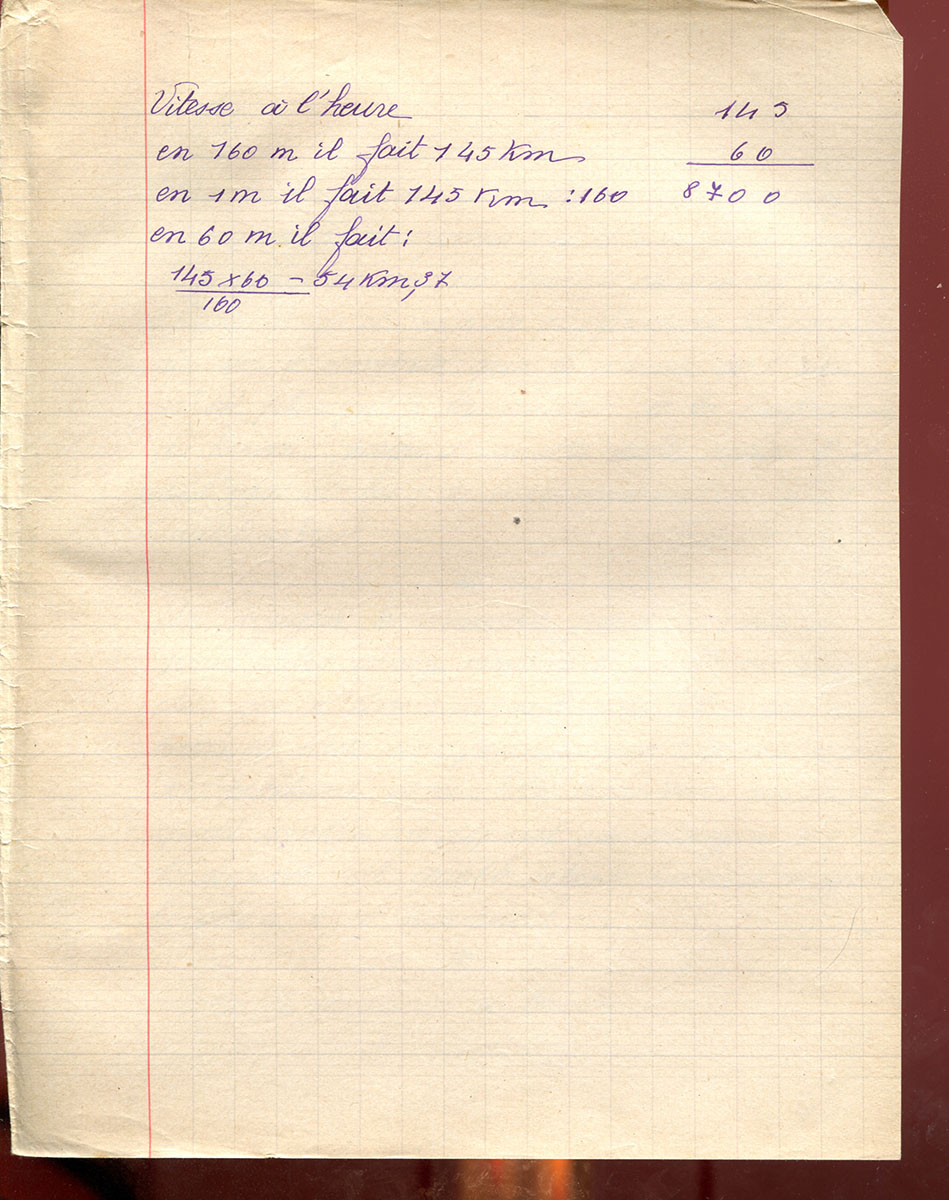 Vitesse à l'heure
en 160 m il fait 145 Km
en 1m il fait 145 Km : 160
en 60 m il fait :
145 x 60 = 54 Km,37
160
145
60
8700